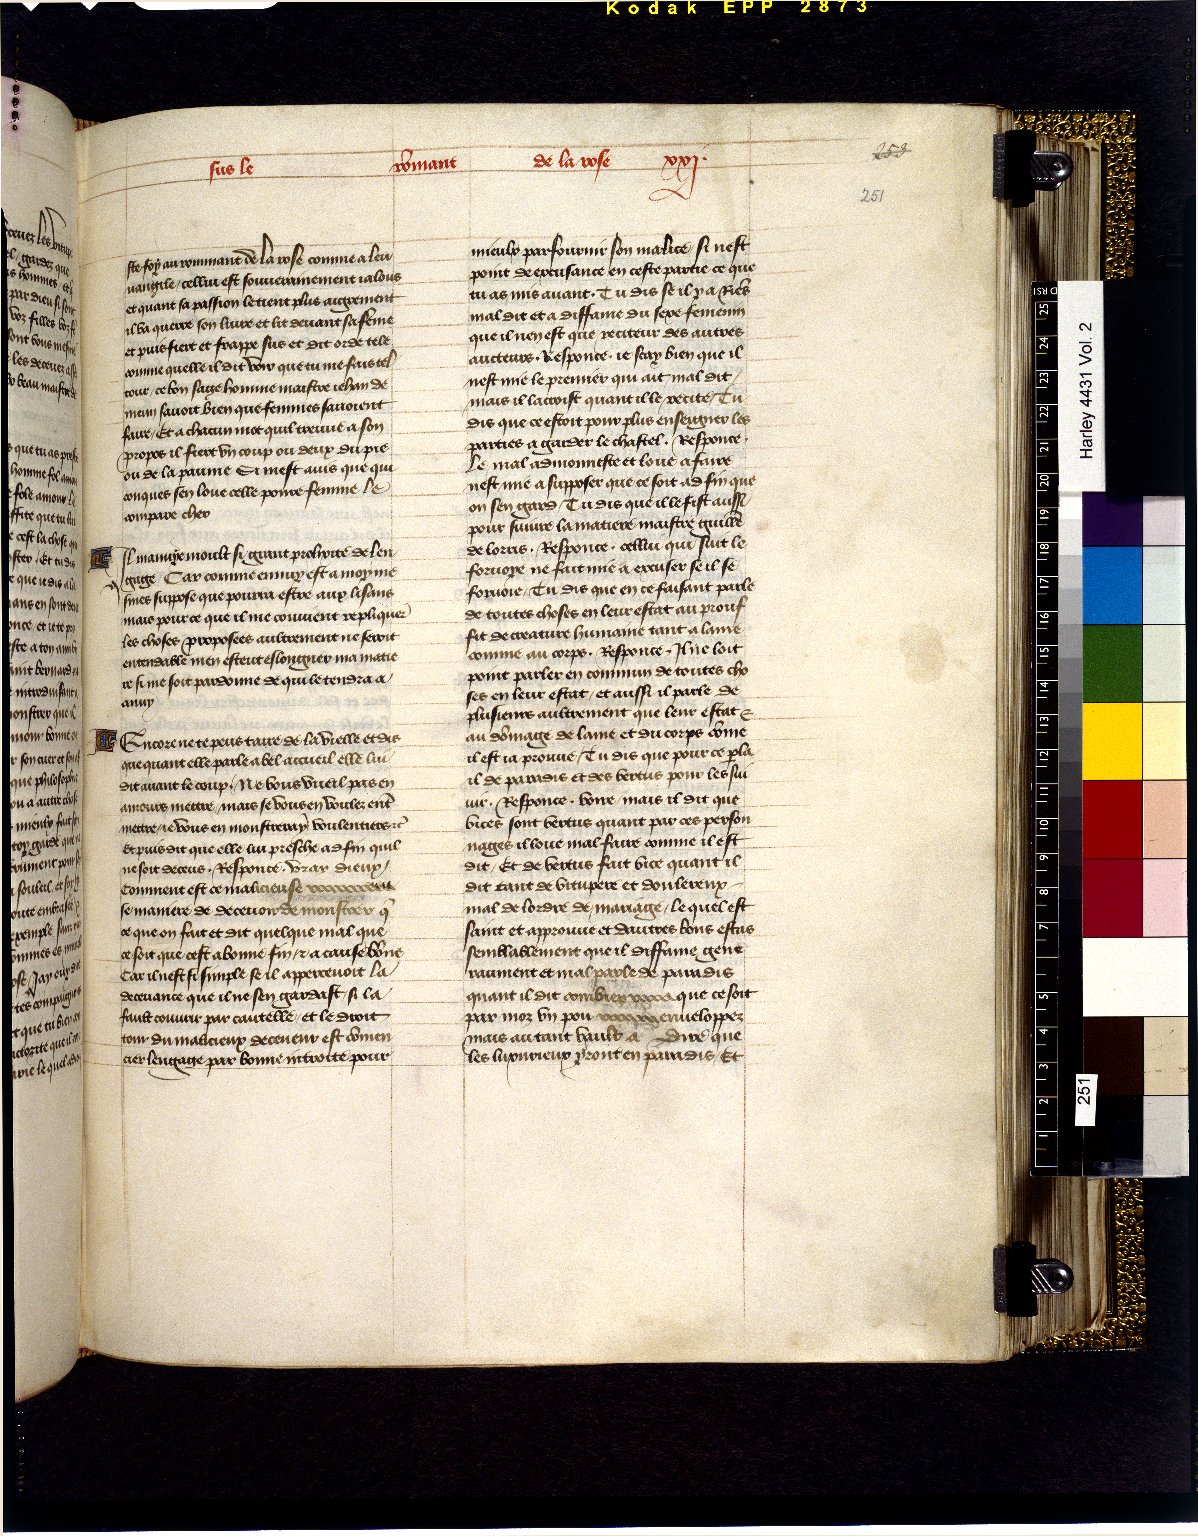 Kodak EPP 2873
sus le rommant de la rose xxj.
253
251
ste foy au rommant de la rose comme a leu
uangile / cellui est souverainement ialous
et quant sa passion le tient plus aigrement
il va querre son livre et lit devant sa feme
et puis fiert et frappe sus et dit orde tele
comme quelle il dit voir que tu me fais tel
tour / ce bon sage homme maistre iehan de
meun savoit bien que femmes savoient
faire / Et a chacun mot quil treuve a son
propos il fiert un coup ou deux du pie
ou de la paume Si mest avis que qui
conques sen loue celle povre femme le
compare cher
Il manuye moult si grant prolixite de len
gage Car comme ennuy est a moy me
smes suppose que pourra estre aux lisans
mais pour ce que il me couvient repliquer
les choses proposees aultrement ne seroit
entendable men esteut eslongner ma matie
re si me soit pardonne de qui le tendra a
anuy
Encore ne te peus taire de la vielle et dis
que quant elle parle a bel accueil elle lui
dit avant le coup / Ne vous vueil pas en
amours mettre / mais se vous en voulez ent
mettre / ie vous en monstreray voulentiers rc
Et puis dit que elle lui presche ad fin quil
ne soit deceus . Response . vray dieux /
Comment est ce malicieuse
se maniere de decevoir de monstrer q
ce que on fait et dit quelque mal que
ce soit que cest a bonne fin / et a cause bone
Car il nest si simple se il appercevoit la
decevance que il ne sen gardast / si la
fault couvrir par cautelle / et le droit
tour du malicieux deceveur est comen
cier lengage par bonne introite pour
mieulx parfournir son malice / si nest
point de excusance en ceste partie ce que
tu as mis avant . Tu dis se il y a riens
mal dit et a diffame du sexe femenin
que il nen est que reciteur des autres
aucteurs . Response . ie scay bien que il
nest mie le premier qui ait mal dit /
mais il lacroist quant il le recite / Tu
dis que ce estoit pour plus enseigner les
parties a garder le chastel . Responce .
Le mal admonneste et loue a faire
nest mie a supposer que ce soit ad fin que
on sen gard / Tu dis que il le fist aussi
pour suivre la matiere maistre guille
de lorris . Responce . cellui qui suit le
forvoye ne fait mie a excuser se il se
forvoie / Tu dis que en ce faisant parle
de toutes choses en leur estat au prouf
fit de creature humaine tant a lame
comme au corps . Responce . Il ne loit
point parler en commun de toutes cho
ses en leur estat / et aussi il parle de
plusieurs aultrement que leur estat
au domage de lame et du corps come
il est ia prouve / Tu dis que pour ce pla
il de paradis et des vertus pour les sui
vir . Responce . voire mais il dit que
vices sont vertus quant par ces person
nages il loue mal faire comme il est
dit / Et de vertus fait vice quant il
dit tant de vitupere et doulereux
mal de lordre de mariage / le quel est
saint et approuve et dautres bons estas
semblablement que il diffame gene
raument et mal parle de paradis
quant il dit combien que ce soit
par moz un pou envelopper
mais autant vault a dire que
les luxurieux yront en paradis / Et
Harley 4431 Vol. 2
251